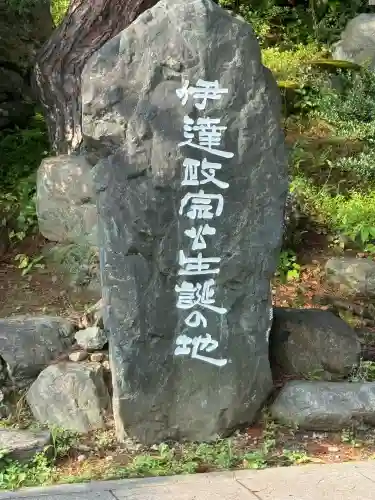 伊達政宗公生誕の地